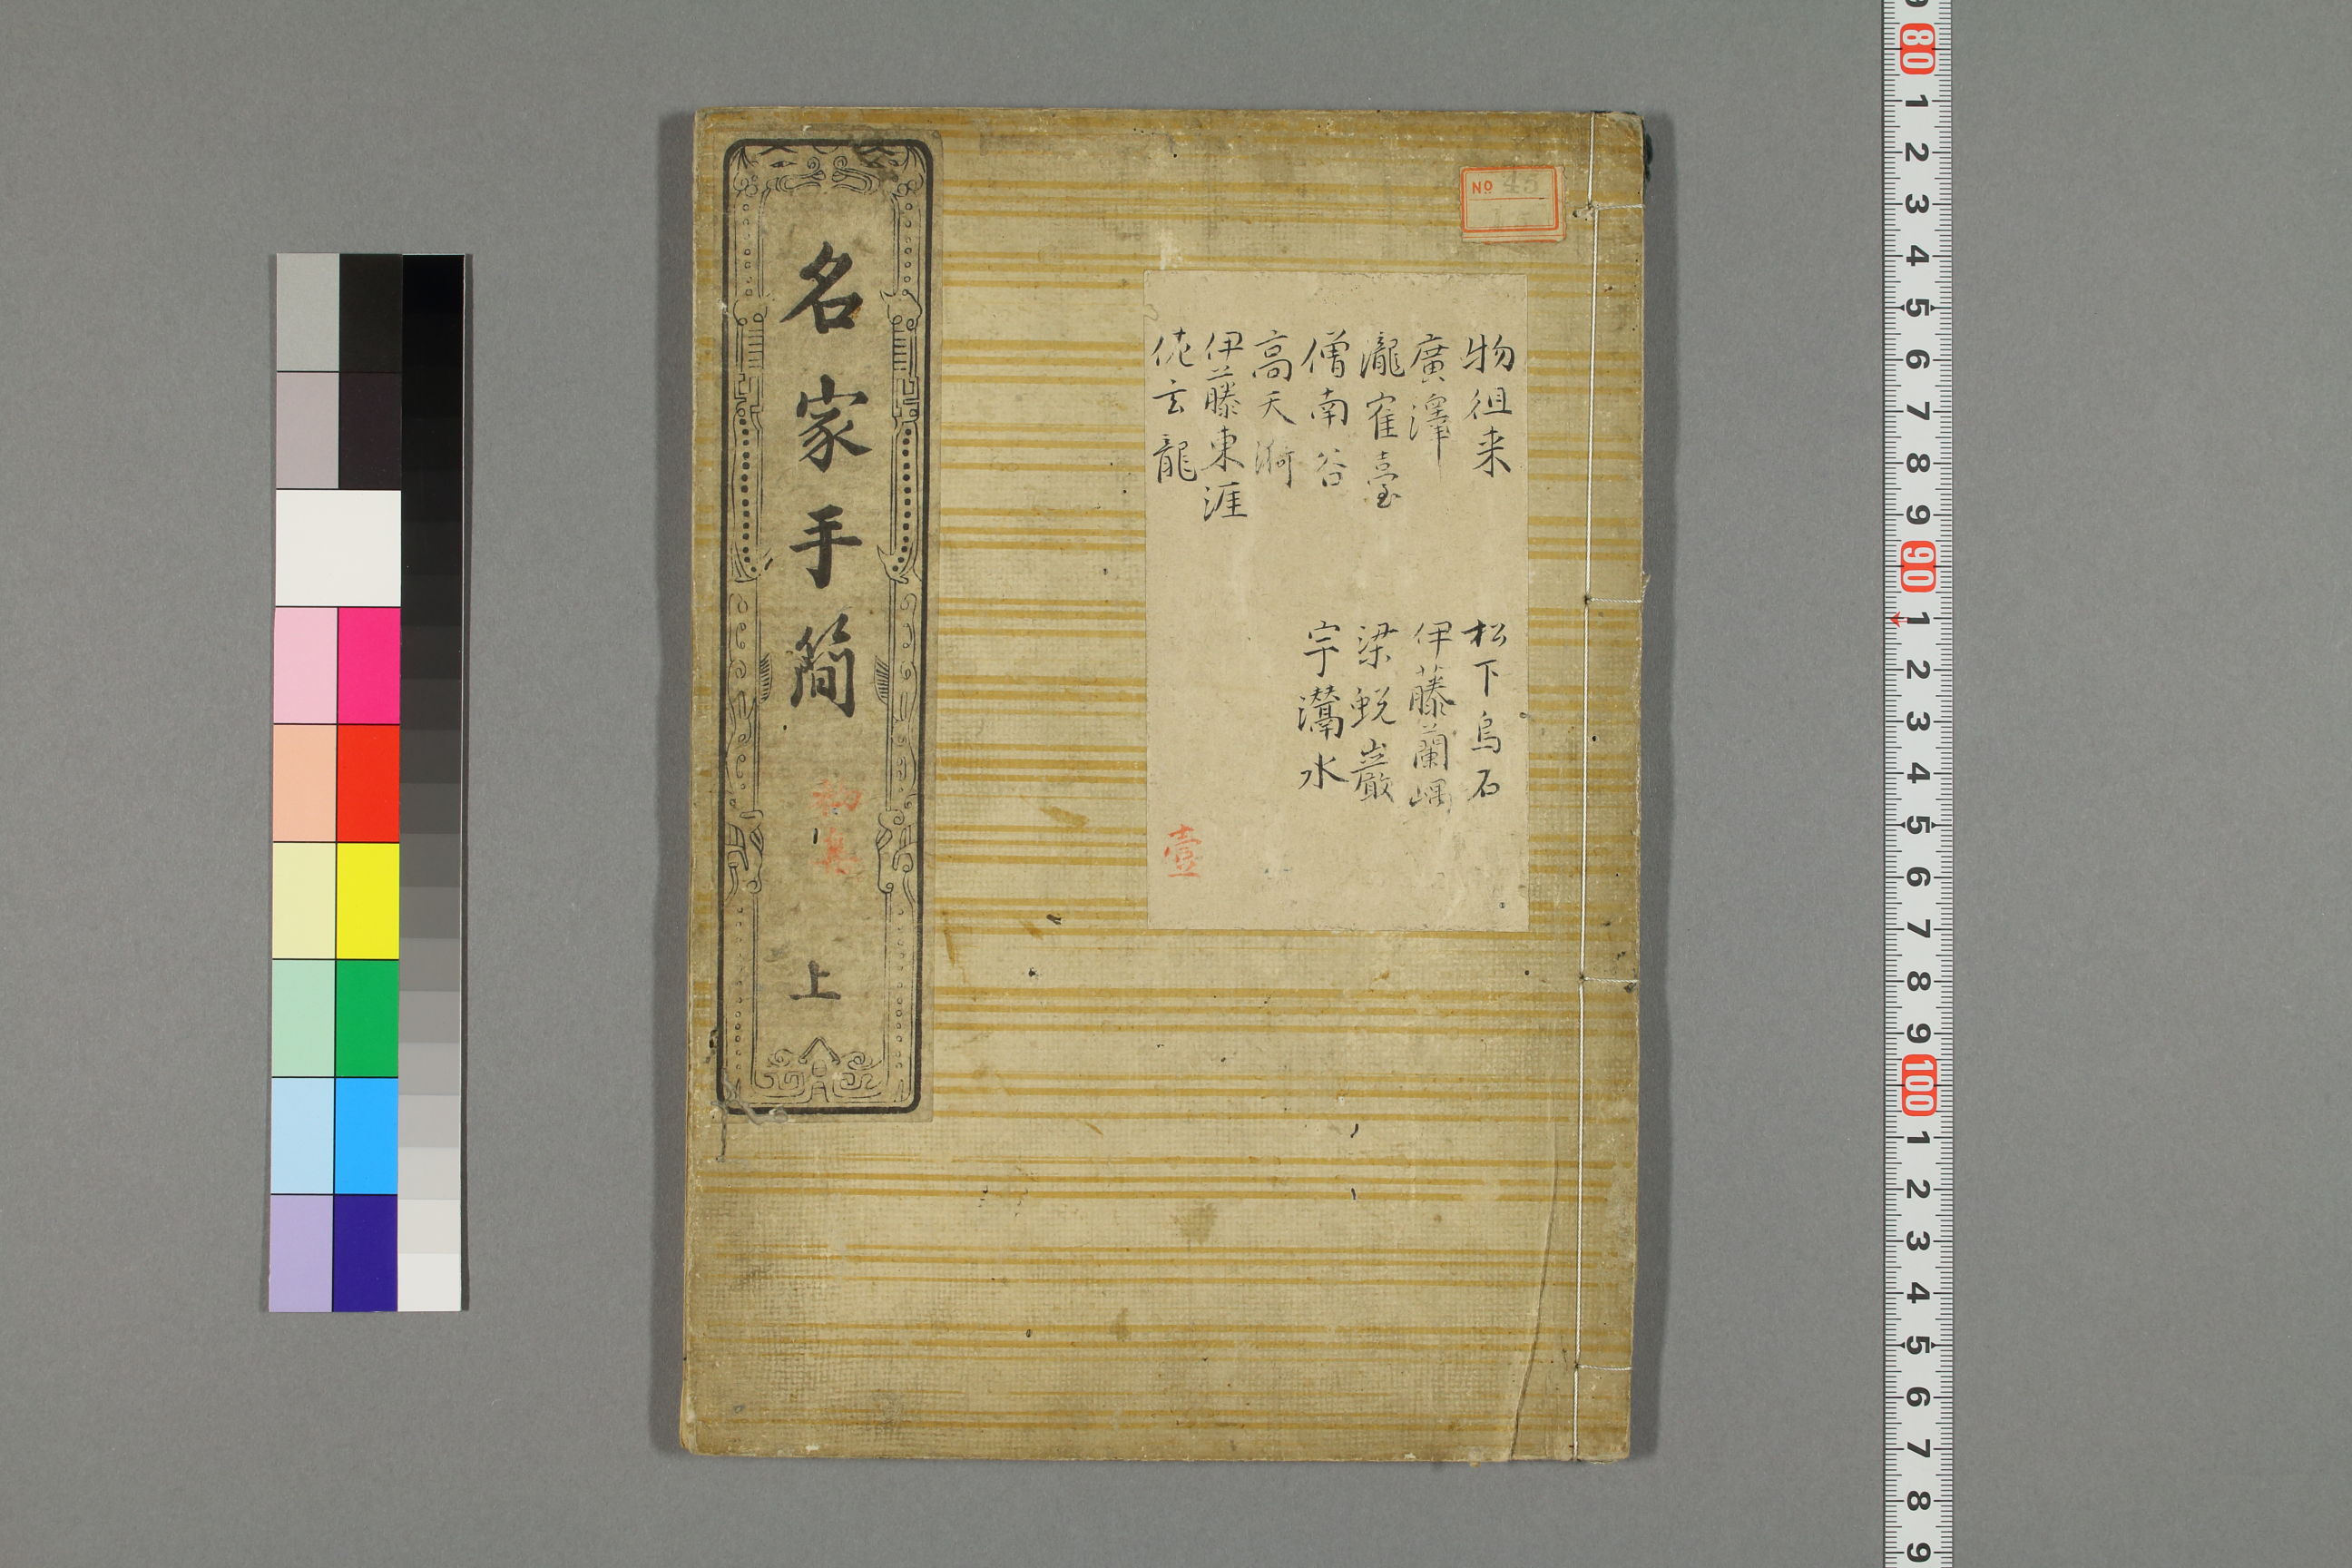 名家手簡
初集
上
No 45
物徂来
廣澤
瀧寉臺
僧南谷
高天漪
伊藤東涯
佗玄龍
松下烏石
伊藤蘭嵎
梁蛻巖
宇灊水
壹
9
80
1
2
3
4
5
6
7
8
9
90
1
2
3
4
5
6
7
8
9
100
1
2
3
4
5
6
7
8
9